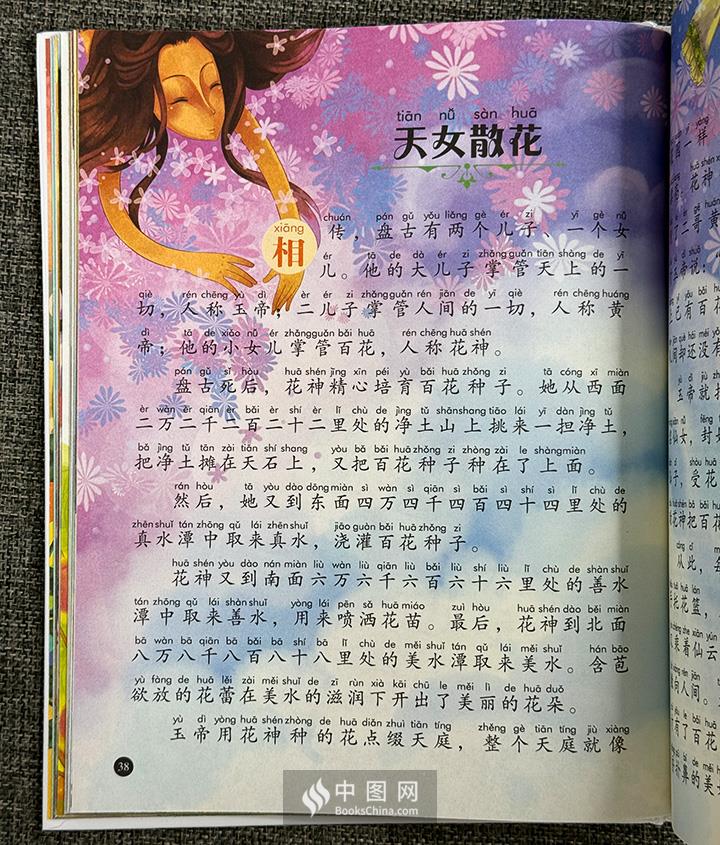 tiān nǚ sàn huā
天女散花
xiāng
相
chuán pán gǔ yǒu liǎng gè ér zi yī gè nǚ
传，盘古有两个儿子、一个女
ér tā de dà ér zi zhǎng guǎn tiān shàng de yī
儿。他的大儿子掌管天上的一
qiè rén chēng yù dì èr ér zi zhǎng guǎn rén jiān de yī qiè rén chēng huáng
切，人称玉帝；二儿子掌管人间的一切，人称黄
dì tā de xiǎo nǚ ér zhǎng guǎn bǎi huā rén chēng huā shén
帝；他的小女儿掌管百花，人称花神。
pán gǔ sǐ hòu huā shén jīng xīn péi yù bǎi huā zhǒng zi tā cóng xī miàn
盘古死后，花神精心培育百花种子。她从西面
èr wàn èr qiān èr bǎi èr shí èr lǐ chù de jìng tǔ shān shang tiāo lái yī dàn jìng tǔ
二万二千二百二十二里处的净土山上挑来一担净土，
bǎ jìng tǔ tān zài tiān shí shang yòu bǎ bǎi huā zhǒng zi zhòng zài le shàng miàn
把净土摊在天石上，又把百花种子种在了上面。
rán hòu tā yòu dào dōng miàn sì wàn sì qiān sì bǎi sì shí sì lǐ chù de
然后，她又到东面四万四千四百四十四里处的
zhēn shuǐ tán zhōng qǔ lái zhēn shuǐ jiāo guàn bǎi huā zhǒng zi
真水潭中取来真水，浇灌百花种子。
huā shén yòu dào nán miàn liù wàn liù qiān liù bǎi liù shí liù lǐ chù de shàn shuǐ
花神又到南面六万六千六百六十六里处的善水
tán zhōng qǔ lái shàn shuǐ yòng lái pēn sǎ huā miáo zuì hòu huā shén dào běi miàn
潭中取来善水，用来喷洒花苗。最后，花神到北面
bā wàn bā qiān bā bǎi bā shí bā lǐ chù de měi shuǐ tán qǔ lái měi shuǐ hán bāo
八万八千八百八十八里处的美水潭取来美水。含苞
yù fàng de huā lěi zài měi shuǐ de zī rùn xià kāi chū le měi lì de huā duǒ
欲放的花蕾在美水的滋润下开出了美丽的花朵。
yù dì yòng huā shén zhòng de huā diǎn zhuì tiān tíng zhěng gè tiān tíng jiù xiàng
玉帝用花神种的花点缀天庭，整个天庭就像
38
中图网
BooksChina.com